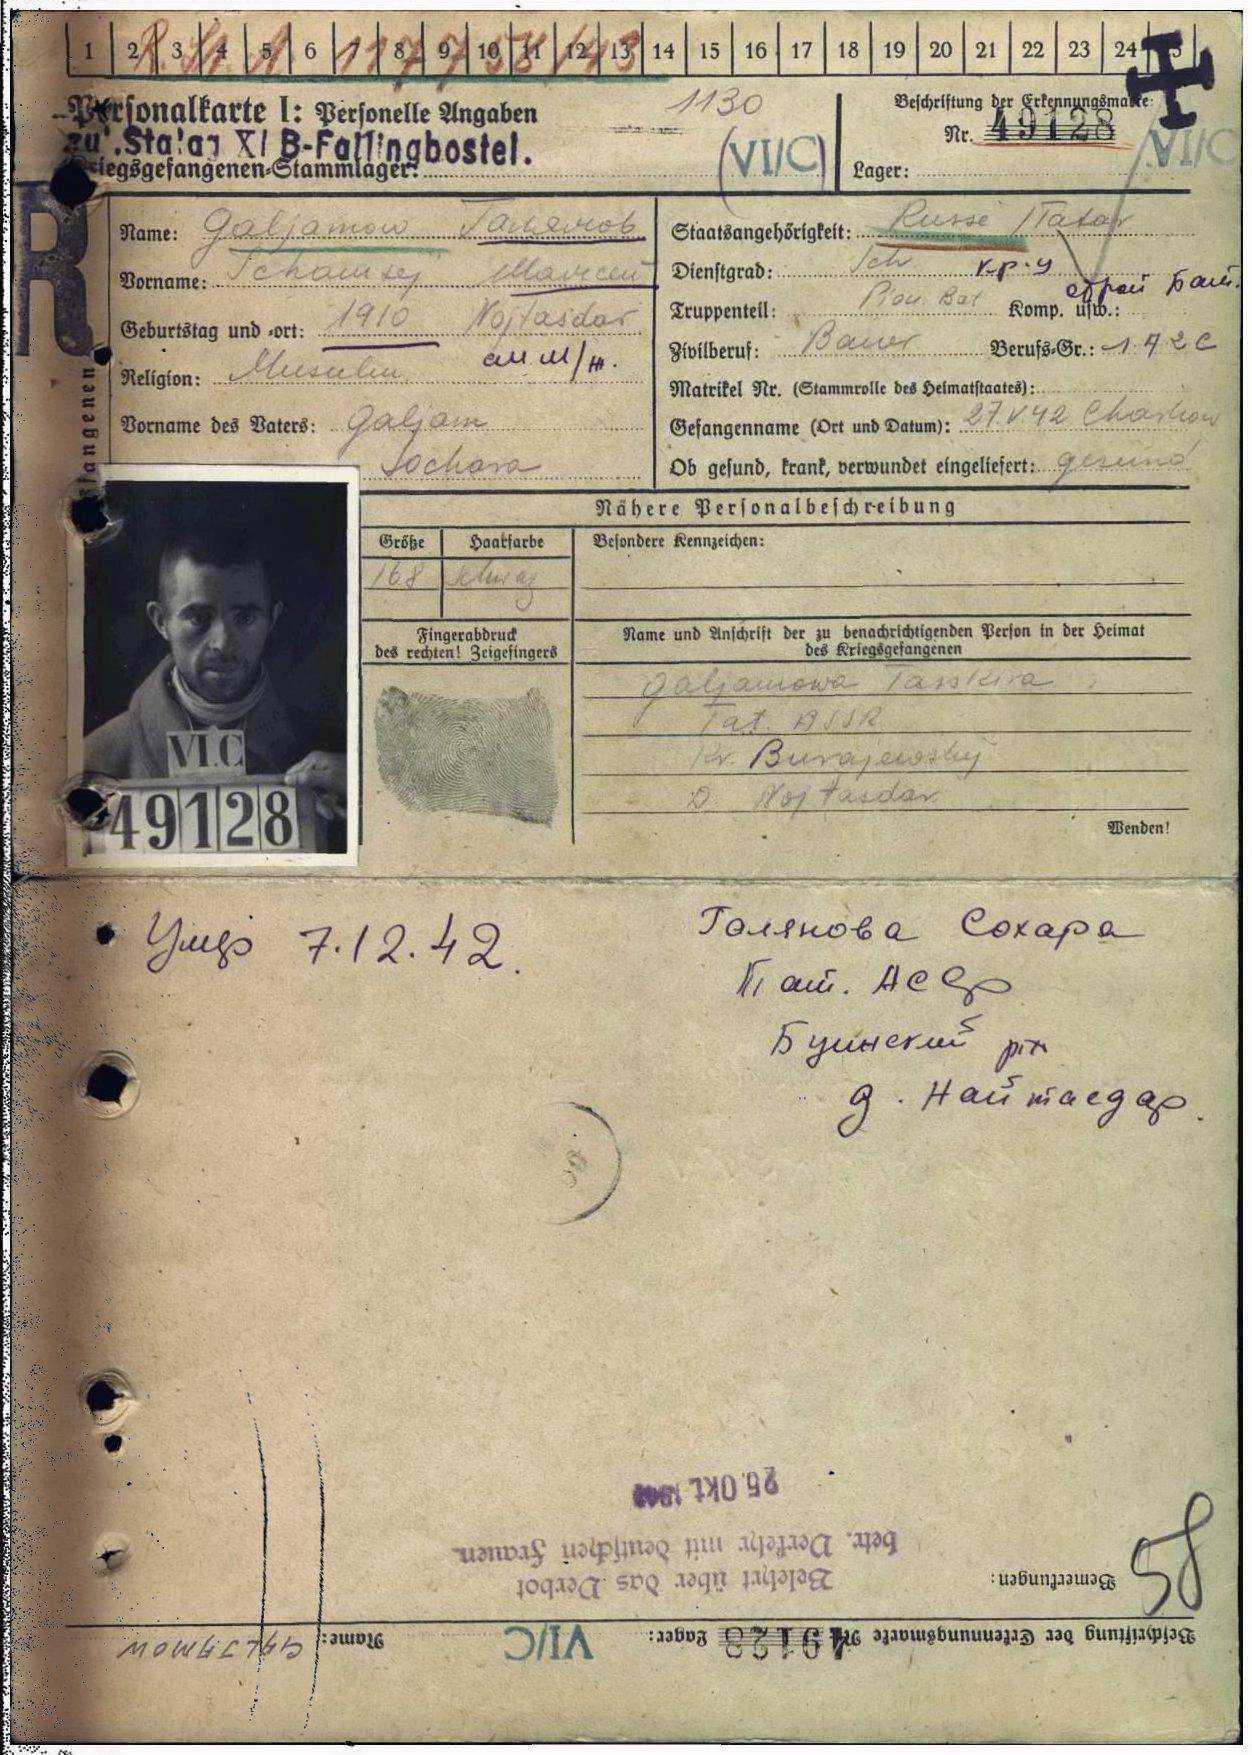 1 2 3 4 5 6 7 8 9 10 11 12 13 14 15 16 17 18 19 20 21 22 23 24
R. St. A 117758/43
Personalkarte I: Personelle Angaben
1130
Beschriftung der Erkennungsmarke
Nr. 49128
zu: Stalag XI B-Fallingbostel.
Kriegsgefangenen-Stammlager:
(VI/C)
Lager:
VI/C
R
Name: Galjamow Галямов
Vorname: Schamsej
Geburtstag und -ort: 1910 Nojtasdar
Religion: Muselm
Vorname des Vaters: Galjam
Sochara
Staatsangehörigkeit: Russe / Tatar
Dienstgrad: Sch. к.р-ц
Truppenteil: Pion. Bat Komp. usw.: строй Бат.
Zivilberuf: Bauer Berufs-Gr.: 1A2c
Matrikel Nr. (Stammrolle des Heimatstaates):
Gefangenname (Ort und Datum): 27.V.42 Charkow
Ob gesund, krank, verwundet eingeliefert: gesund
Nähere Personalbeschreibung
Größe Haarfarbe Besondere Kennzeichen:
168 schwaz
Fingerabdruck
des rechten! Zeigefingers
Name und Anschrift der zu benachrichtigenden Person in der Heimat
des Kriegsgefangenen
Galjamowa Tasskira
Tat. ASSR
Kr. Burajewskij
D. Nojtasdar
VI.C
49128
Wenden!
Умер 7.12.42.
Галямова Сохара
Тат. АССР
Буинский р-н
д. Найтасдар.
25. OKT. 1942
betr. Verkehr mit deutschen Frauen.
Belehrt über das Verbot
Bemerkungen:
58
Beschriftung der Erkennungsmarke Nr. 49128 Lager: VI/C Name: GALJAMOW